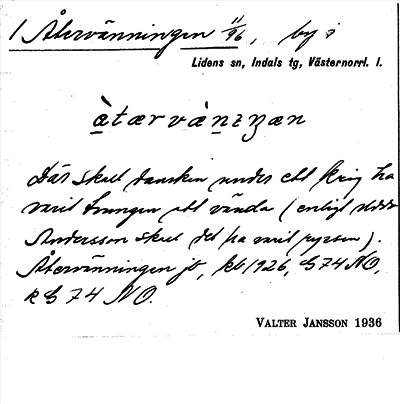 1 Återvänningen 11/96, by i
Lidens sn, Indals tg, Västernorrl. l.
àtærvànɩŋæn
Där skall dansken under ett krig ha
varit tvungen att vända (enligt
Andersson skall det ha varit ryssen).
Återvänningen jb, kb 1926, G 74 NO,
k G 74 NO.
VALTER JANSSON 1936